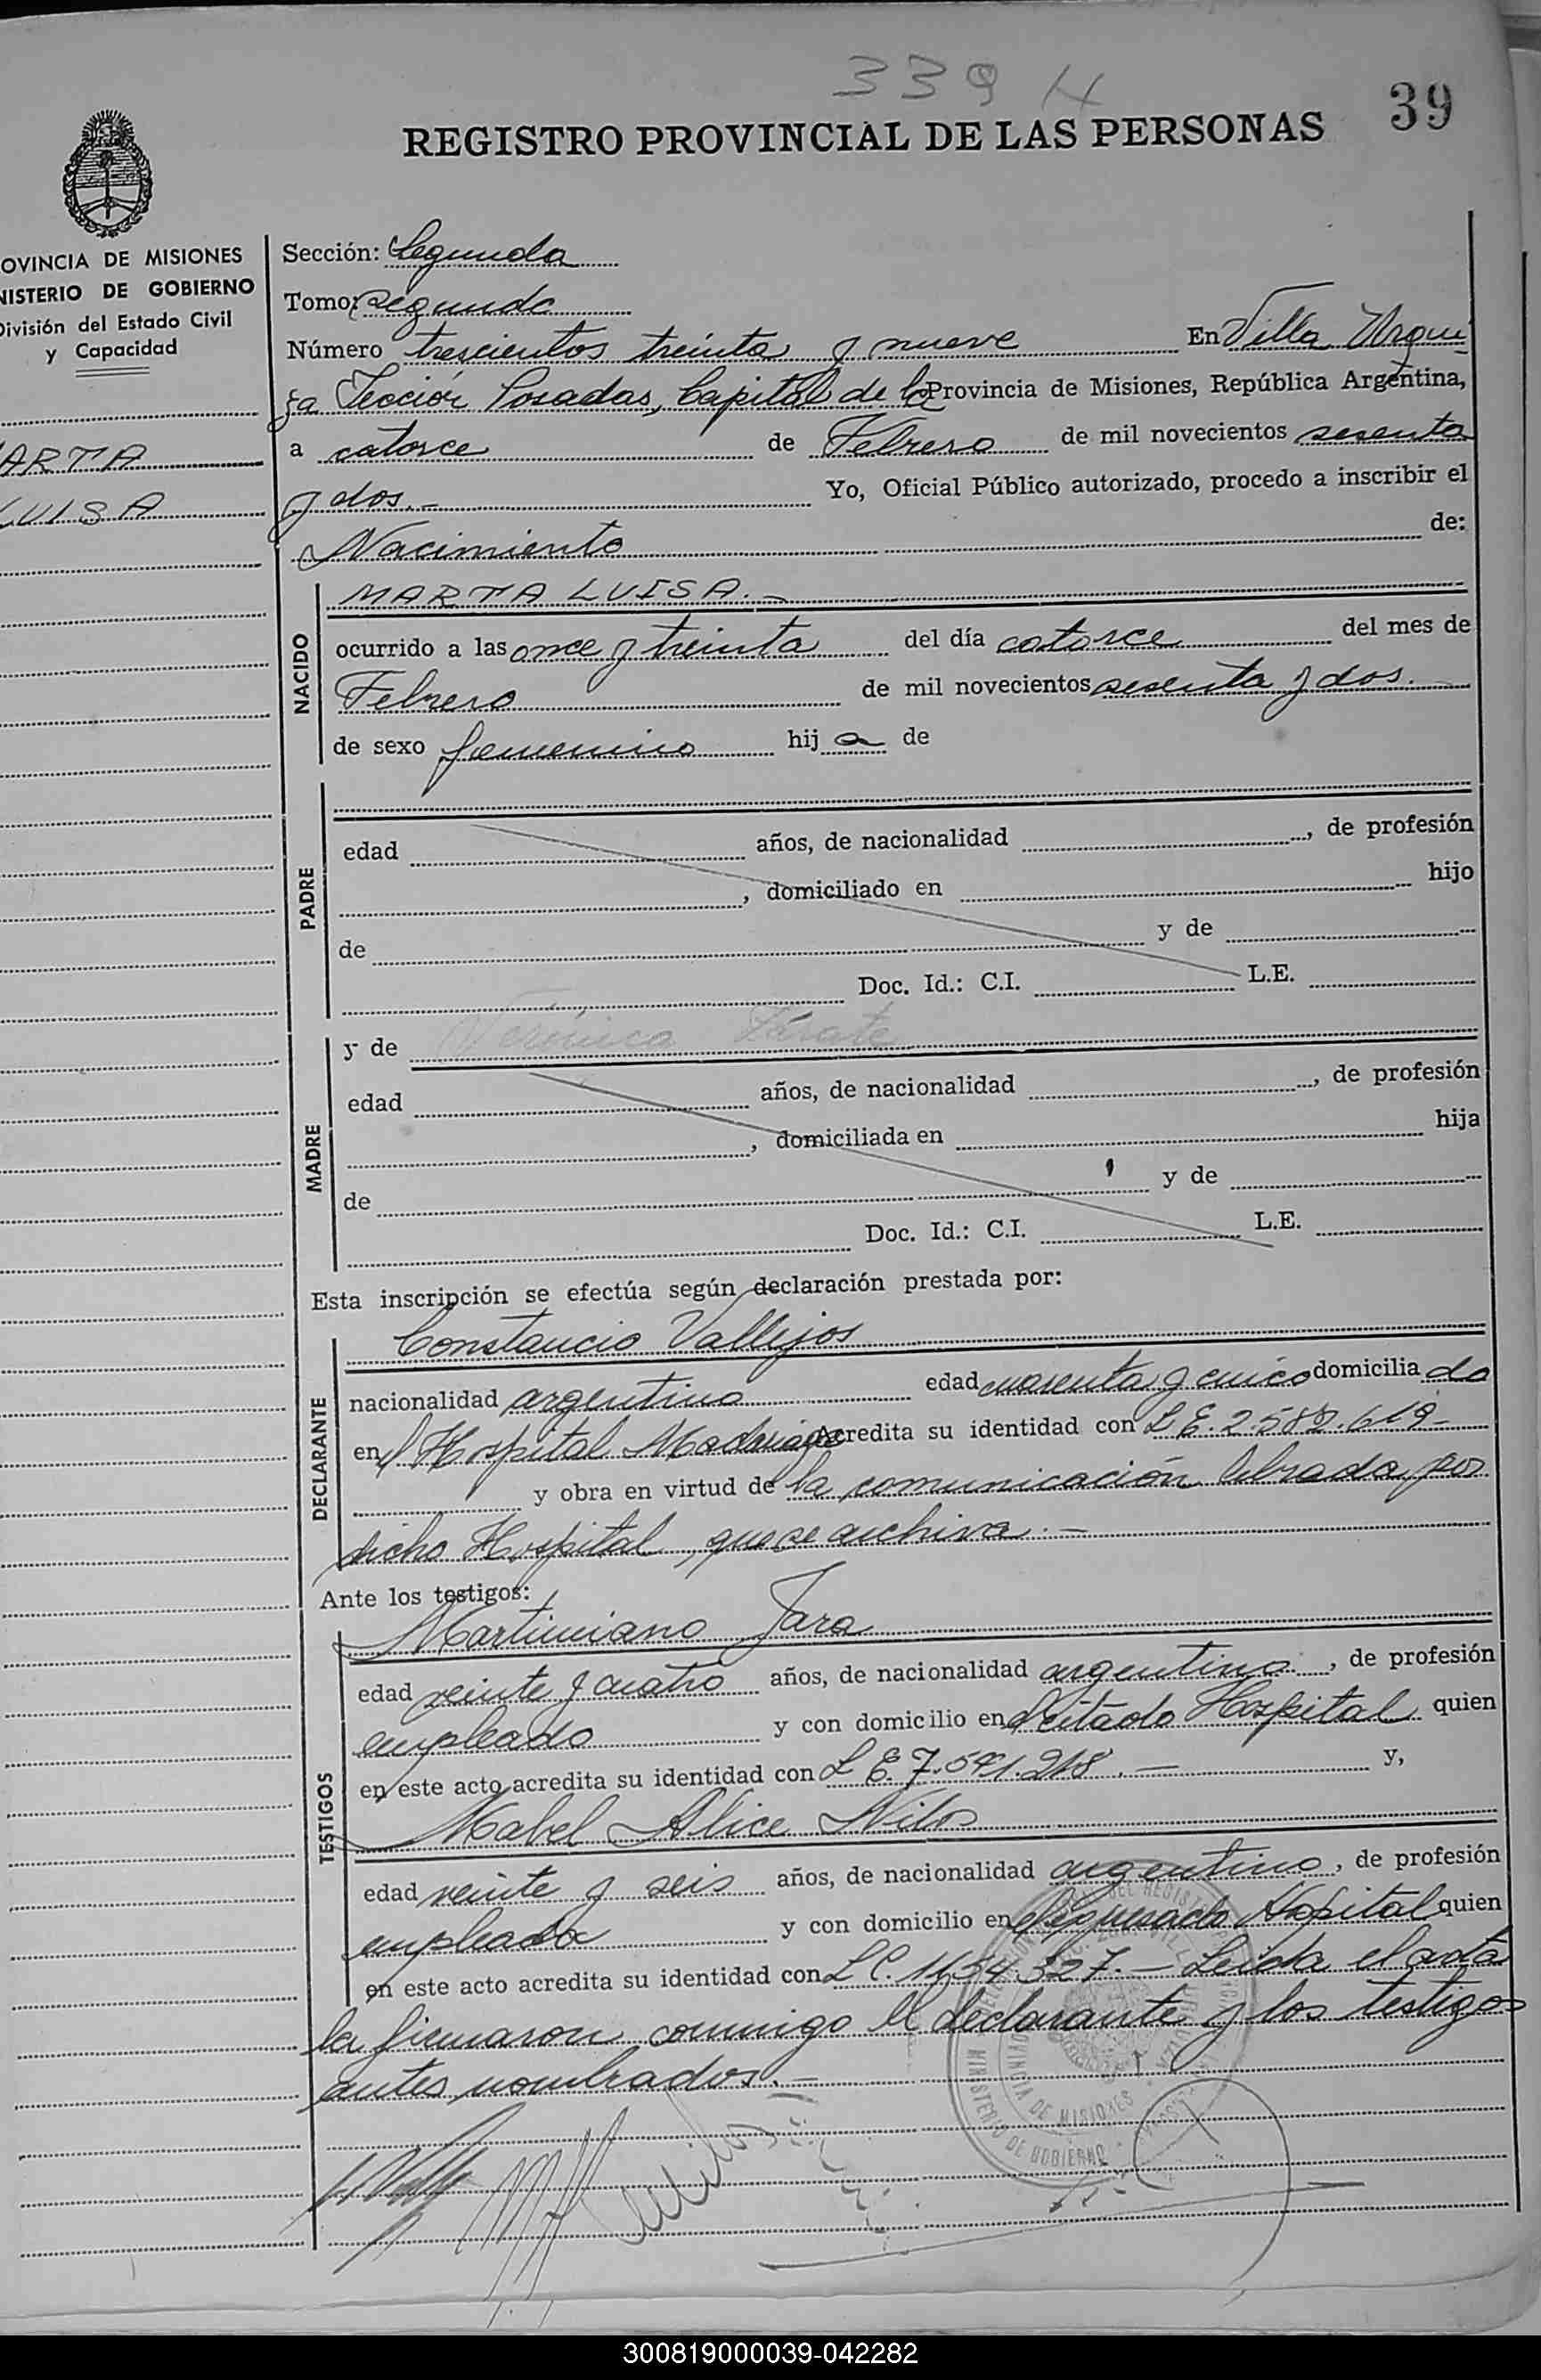 339 H
39
REGISTRO PROVINCIAL DE LAS PERSONAS
OVINCIA DE MISIONES
NISTERIO DE GOBIERNO
División del Estado Civil
y Capacidad
ARTA
LUISA
Sección: Segunda
Tomo: Segundo
Número trescientos treinta y nueve En Villa Urqui
za Sección Posadas, Capital de la Provincia de Misiones, República Argentina,
a catorce de Febrero de mil novecientos sesenta
y dos.- Yo, Oficial Público autorizado, procedo a inscribir el
Nacimiento de:
NACIDO
MARTA LUISA.-
ocurrido a las once y treinta del día catorce del mes de
Febrero de mil novecientos sesenta y dos.
de sexo femenino hij a de
PADRE
edad años, de nacionalidad , de profesión
, domiciliado en hijo
de y de
Doc. Id.: C.I. L.E.
MADRE
y de Verónica Zárate
edad años, de nacionalidad , de profesión
, domiciliada en hija
de y de
Doc. Id.: C.I. L.E.
Esta inscripción se efectúa según declaración prestada por:
DECLARANTE
Constancio Vallejos
nacionalidad argentino edad cuarenta y cinco domicilia do
en el Hospital Madariaga acredita su identidad con L.E. 2.582.619-
y obra en virtud de la comunicación librada por
dicho Hospital, que se archiva.-
Ante los testigos:
TESTIGOS
Martiniano Jara
edad veinte y cuatro años, de nacionalidad argentino, de profesión
empleado y con domicilio en el citado Hospital quien
en este acto acredita su identidad con L E. 7.541.218.- y,
Mabel Alice Nilos
edad veinte y seis años, de nacionalidad argentina, de profesión
empleada y con domicilio en el expresado Hospital quien
en este acto acredita su identidad con L C. 1154327.- Leída el acta
la firmaron conmigo el declarante y los testigos
antes nombrados.-
MINISTERIO DE GOBIERNO
PROVINCIA DE MISIONES
300819000039-042282